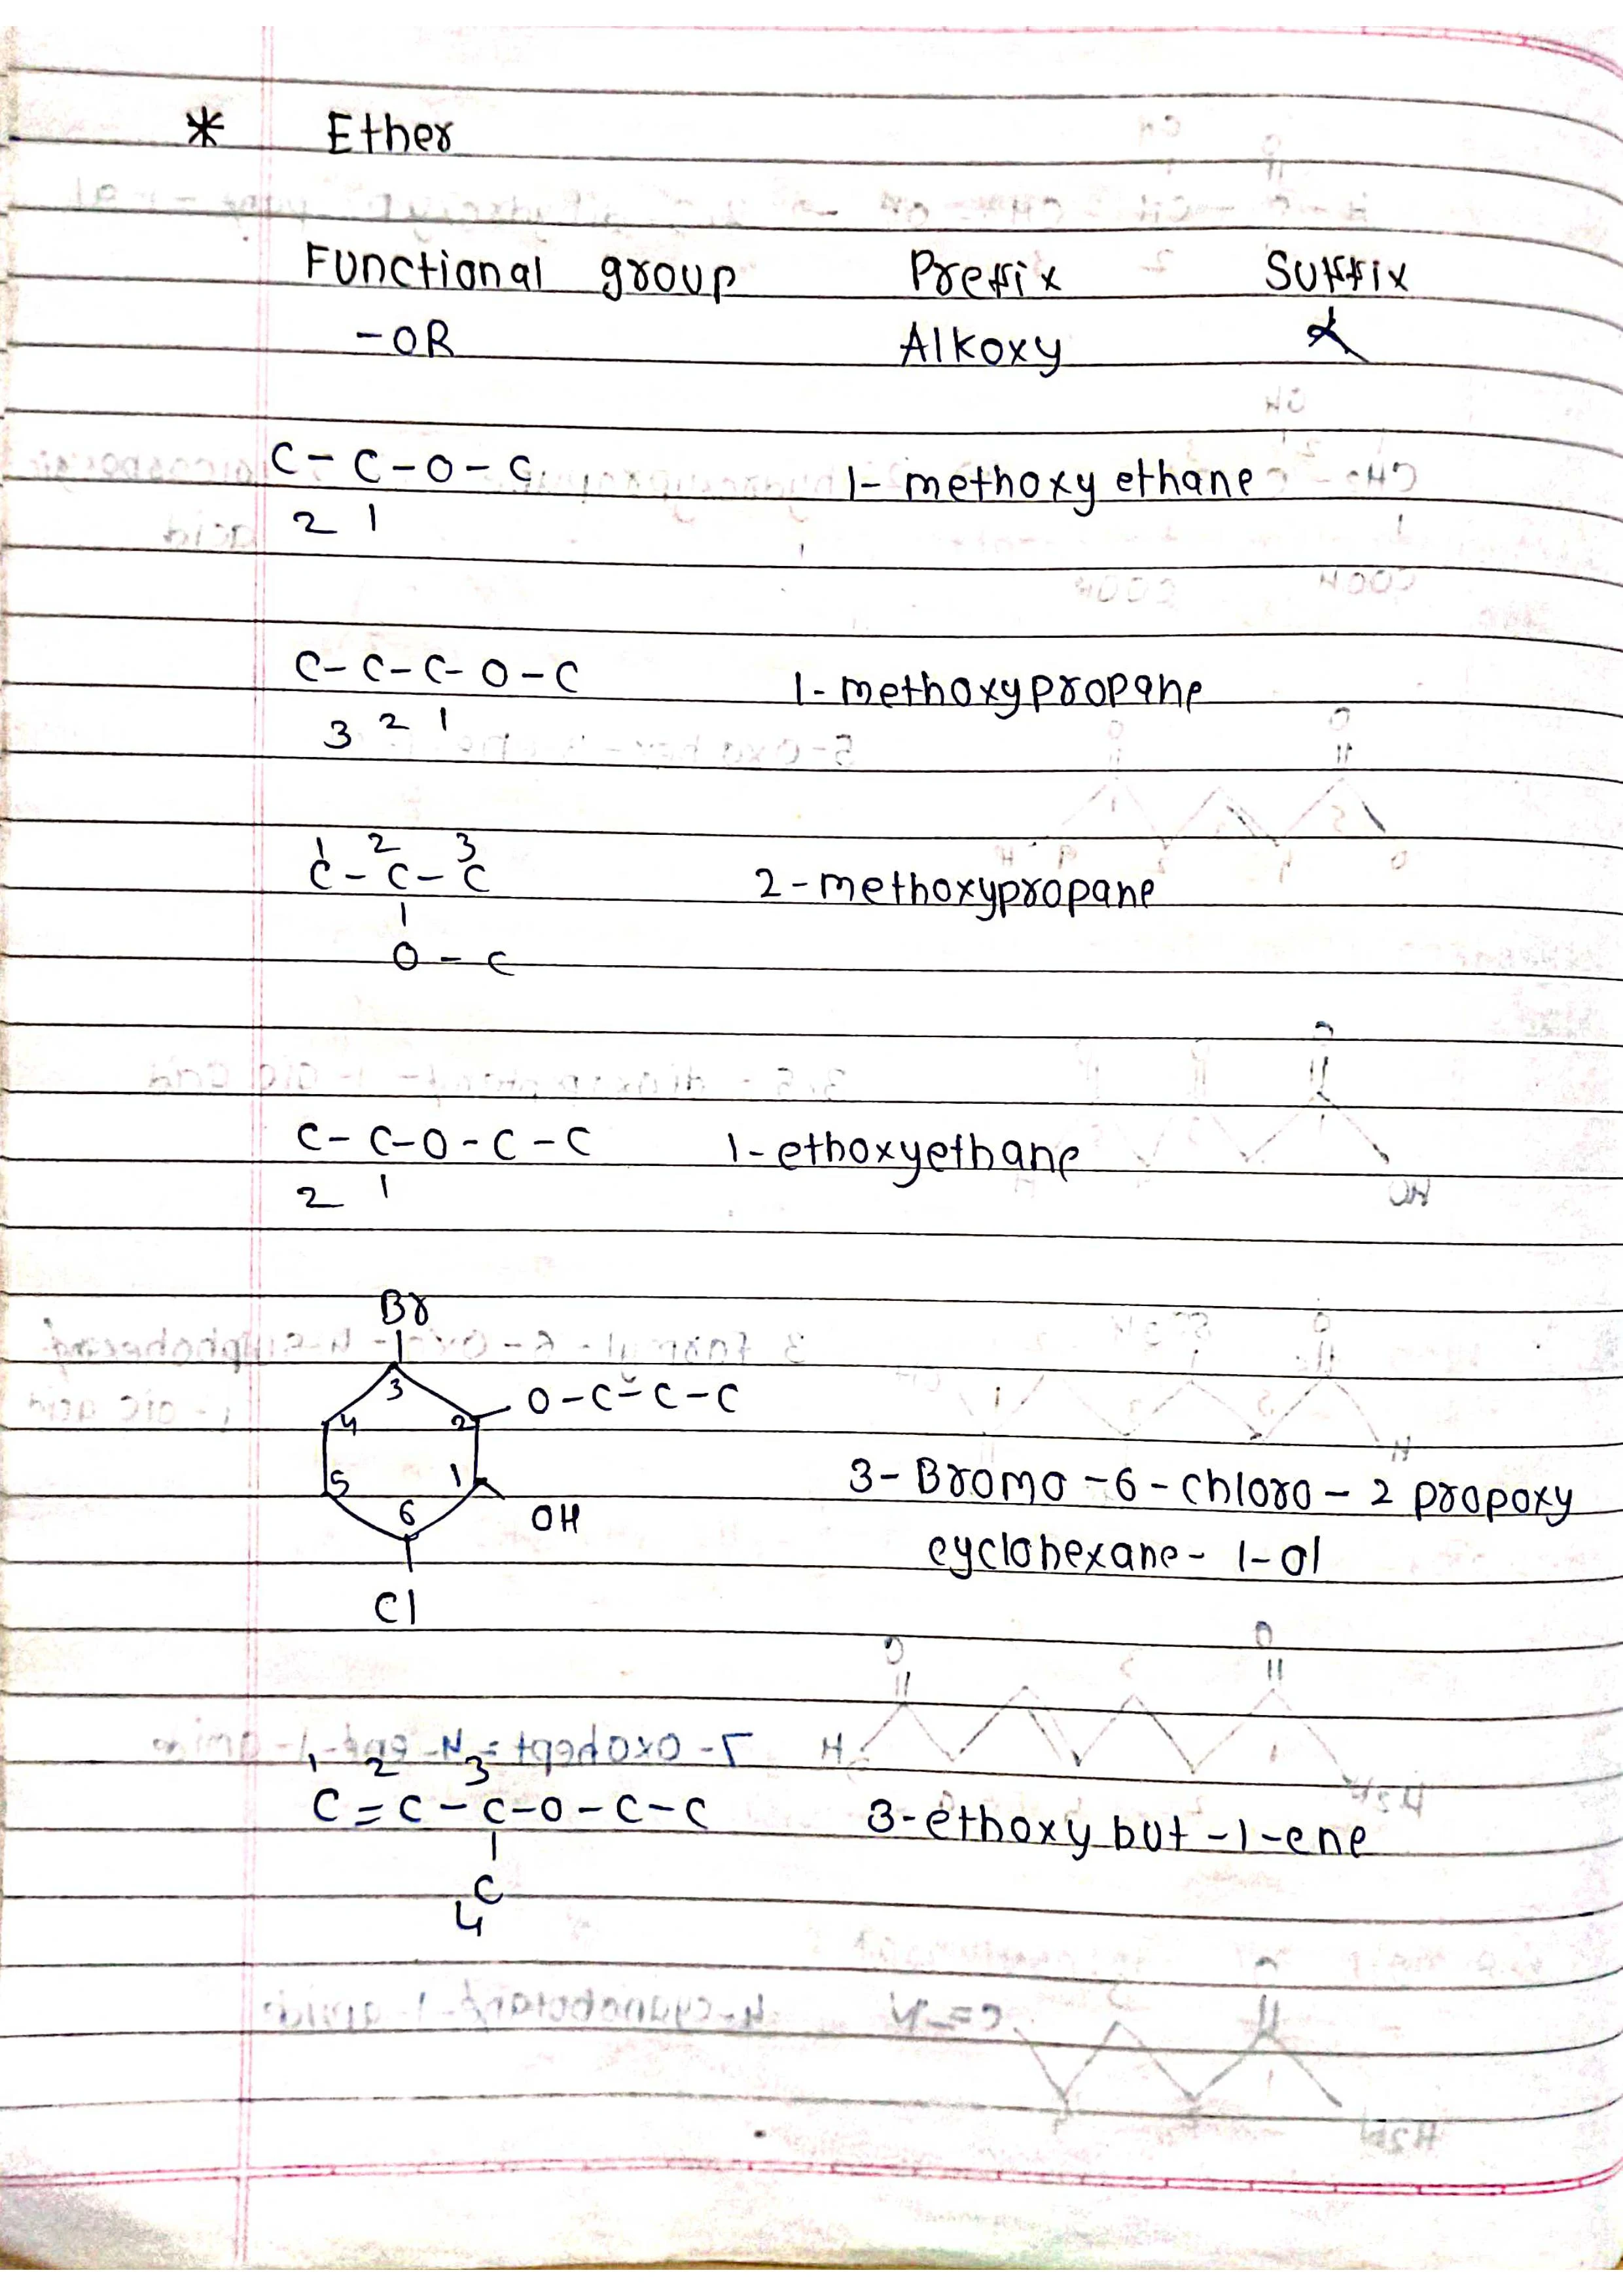 * Ether
Functional group Prefix Suffix
-OR Alkoxy
C-C-O-C 1- methoxy ethane
2 1
C-C-C-O-C 1-methoxypropane
3 2 1
1 2 3
C-C-C 2-methoxypropane
O-C
C-C-O-C-C 1-ethoxyethane
2 1
Br
3
4 2 O-C-C-C
5 1
6 OH
3-Bromo-6-chloro-2 propoxy
cyclohexane-1-ol
Cl
1 2 3
C=C-C-O-C-C 3-ethoxy but-1-ene
C
4